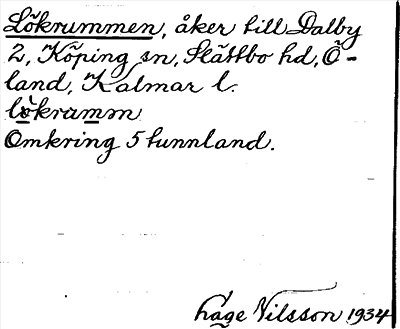 Lökrummen, åker till Dalby
2, Köping sn, Slättbo hd, Ö-
land, Kalmar l.
lökramm
Omkring 5 tunnland.
Åge Nilsson 1934